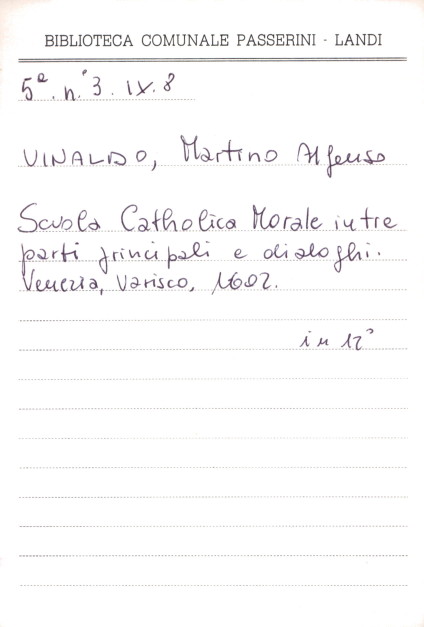 BIBLIOTECA COMUNALE PASSERINI - LANDI
5ª. n.° 3. IX. 8
VINALDO, Martino Alfonso
Scuola Catholica Morale in tre
parti principali e dialoghi.
Venezia, Varisco, 1602.
in 12°